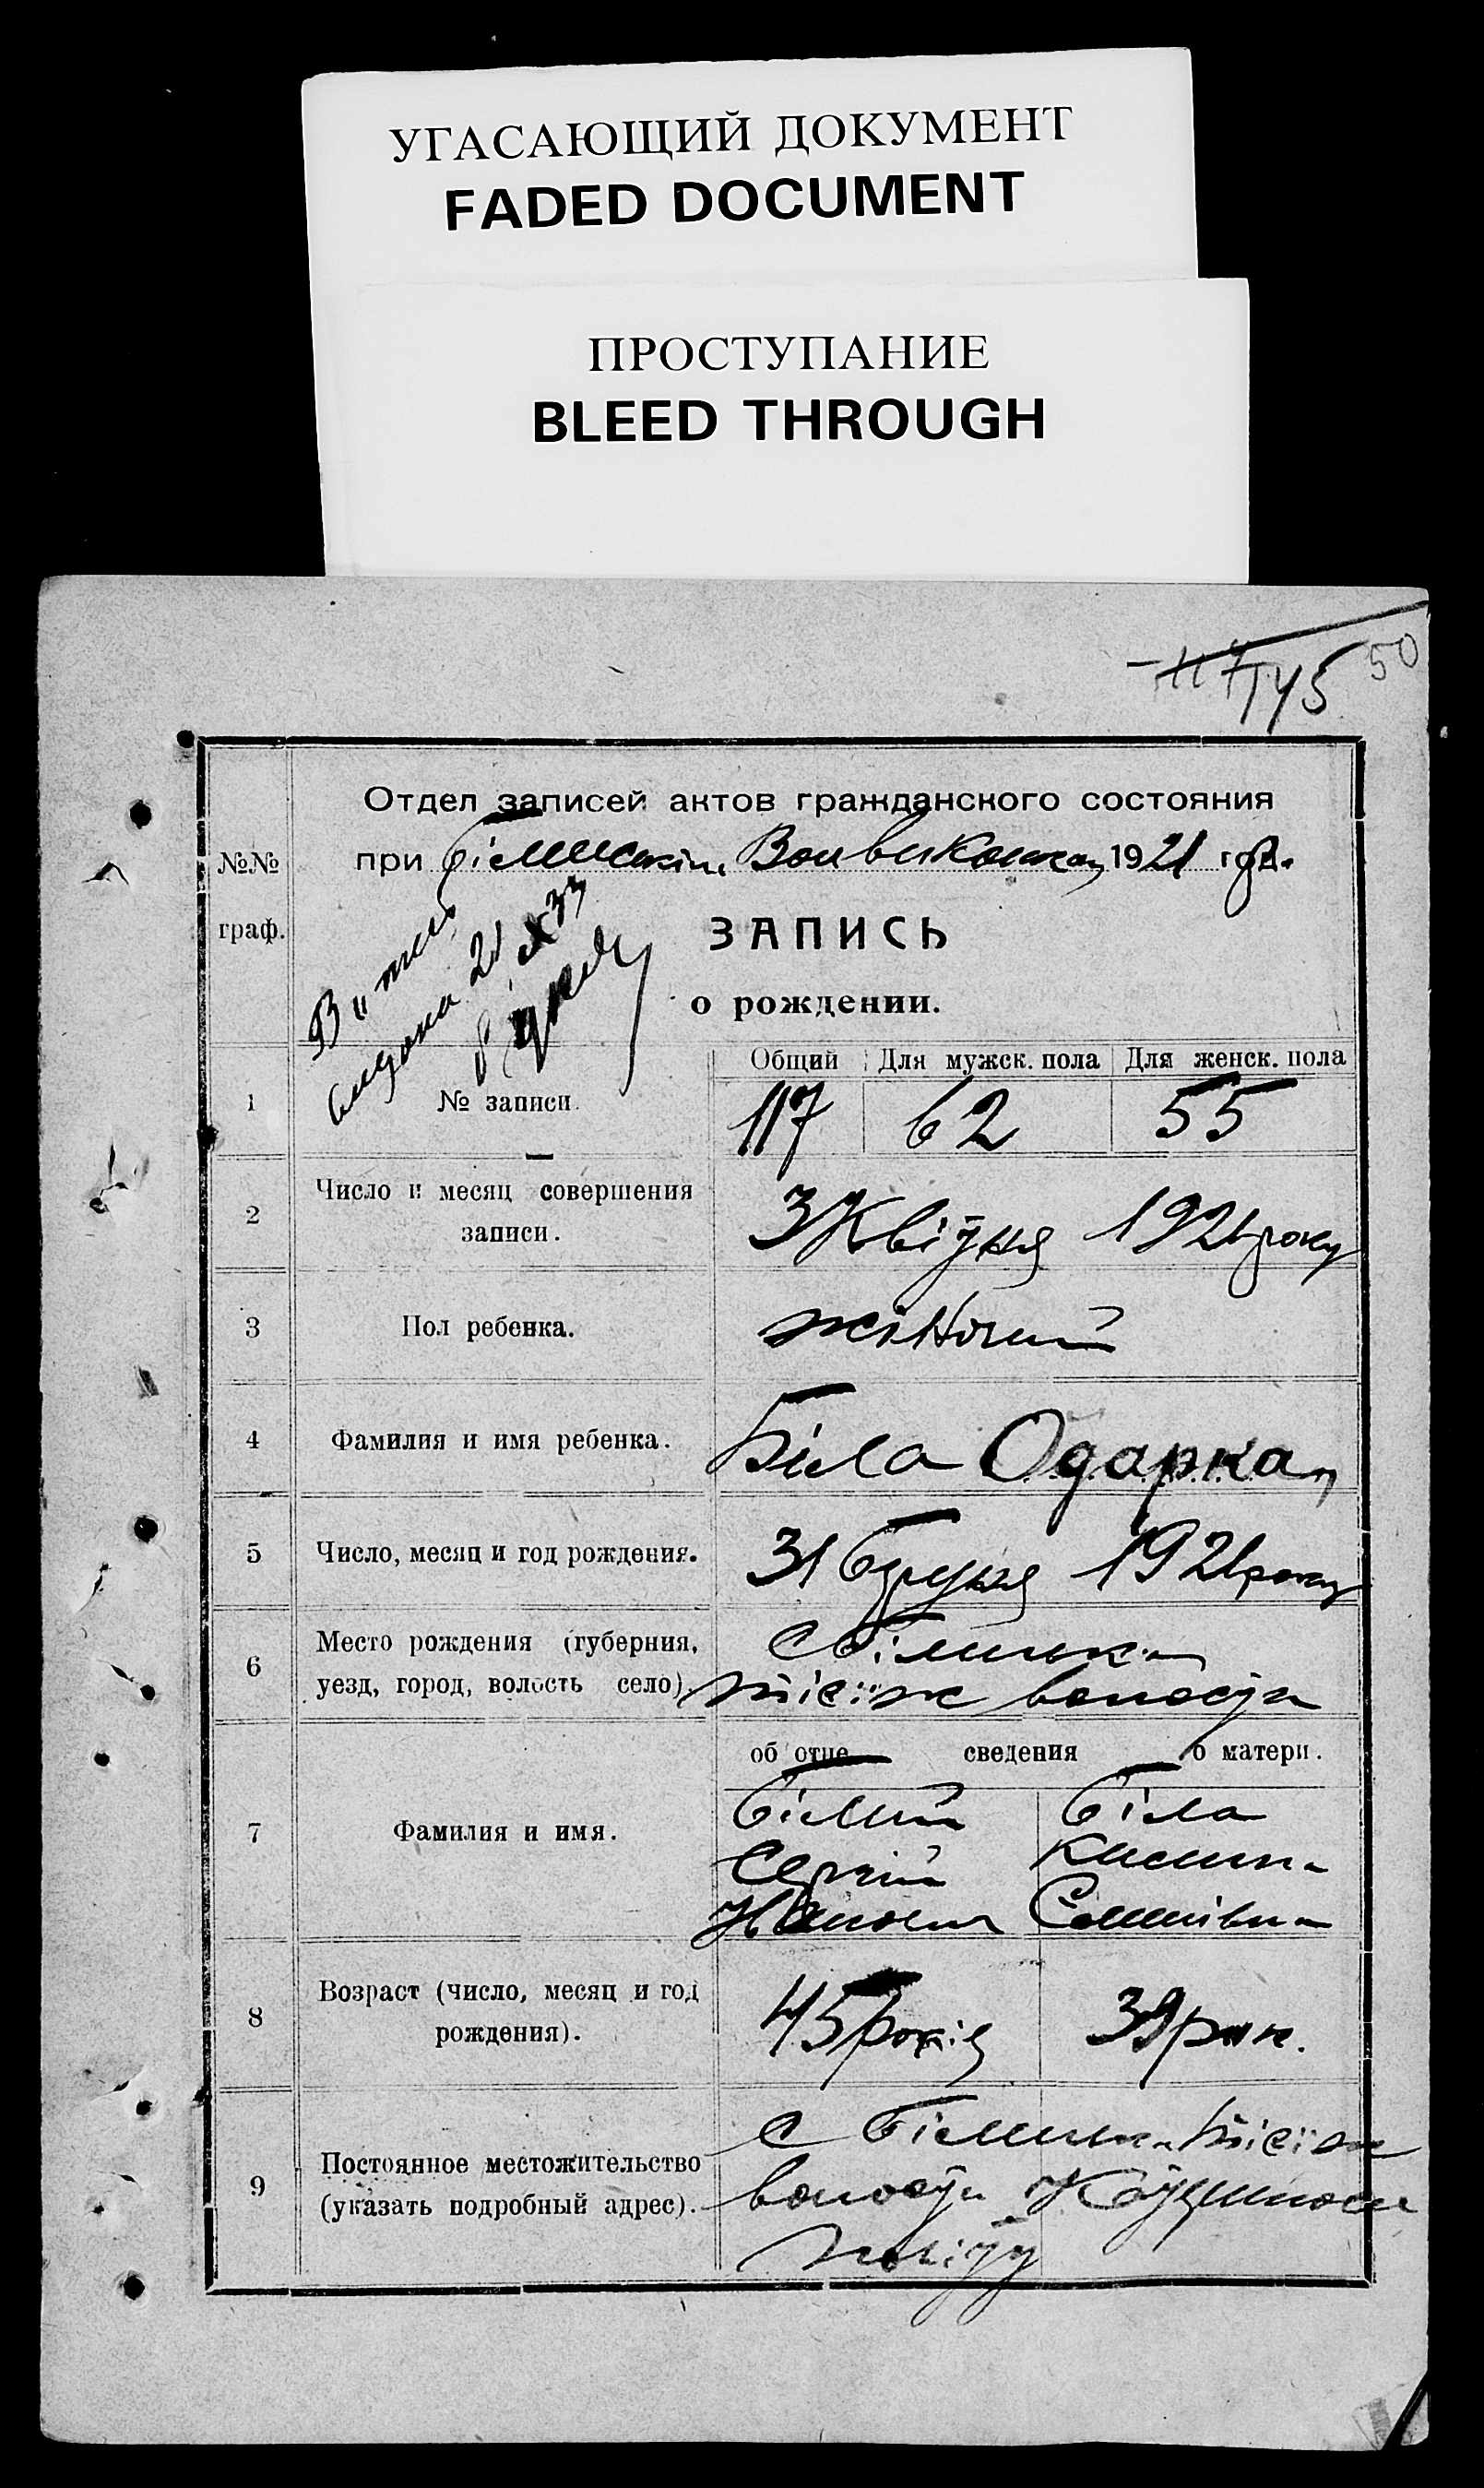 УГАСАЮЩИЙ ДОКУМЕНТ
FADED DOCUMENT
ПРОСТУПАНИЕ
BLEED THROUGH
117 145 50
Отдел записей актов гражданского состояния
№№ граф.
при Волвиконком 1921 год.
ЗАПИСЬ
о рождении.
Витяг
видано 21 X 33
Общий Для мужск. пола Для женск. пола
1 № записи. 117 62 55
2 Число и месяц совершения записи. 3 Квітня 1921 року
3 Пол ребенка. жіночий
4 Фамилия и имя ребенка. Біла Одарка
5 Число, месяц и год рождения. 31 1921 року
6 Место рождения (губерния, уезд, город, волость село). с
волости
об отце сведения о матери.
7 Фамилия и имя. Білий Біла
Сергій
8 Возраст (число, месяц и год рождения). 45 років 39 рок.
9 Постоянное местожительство (указать подробный адрес). с
волости
повіту